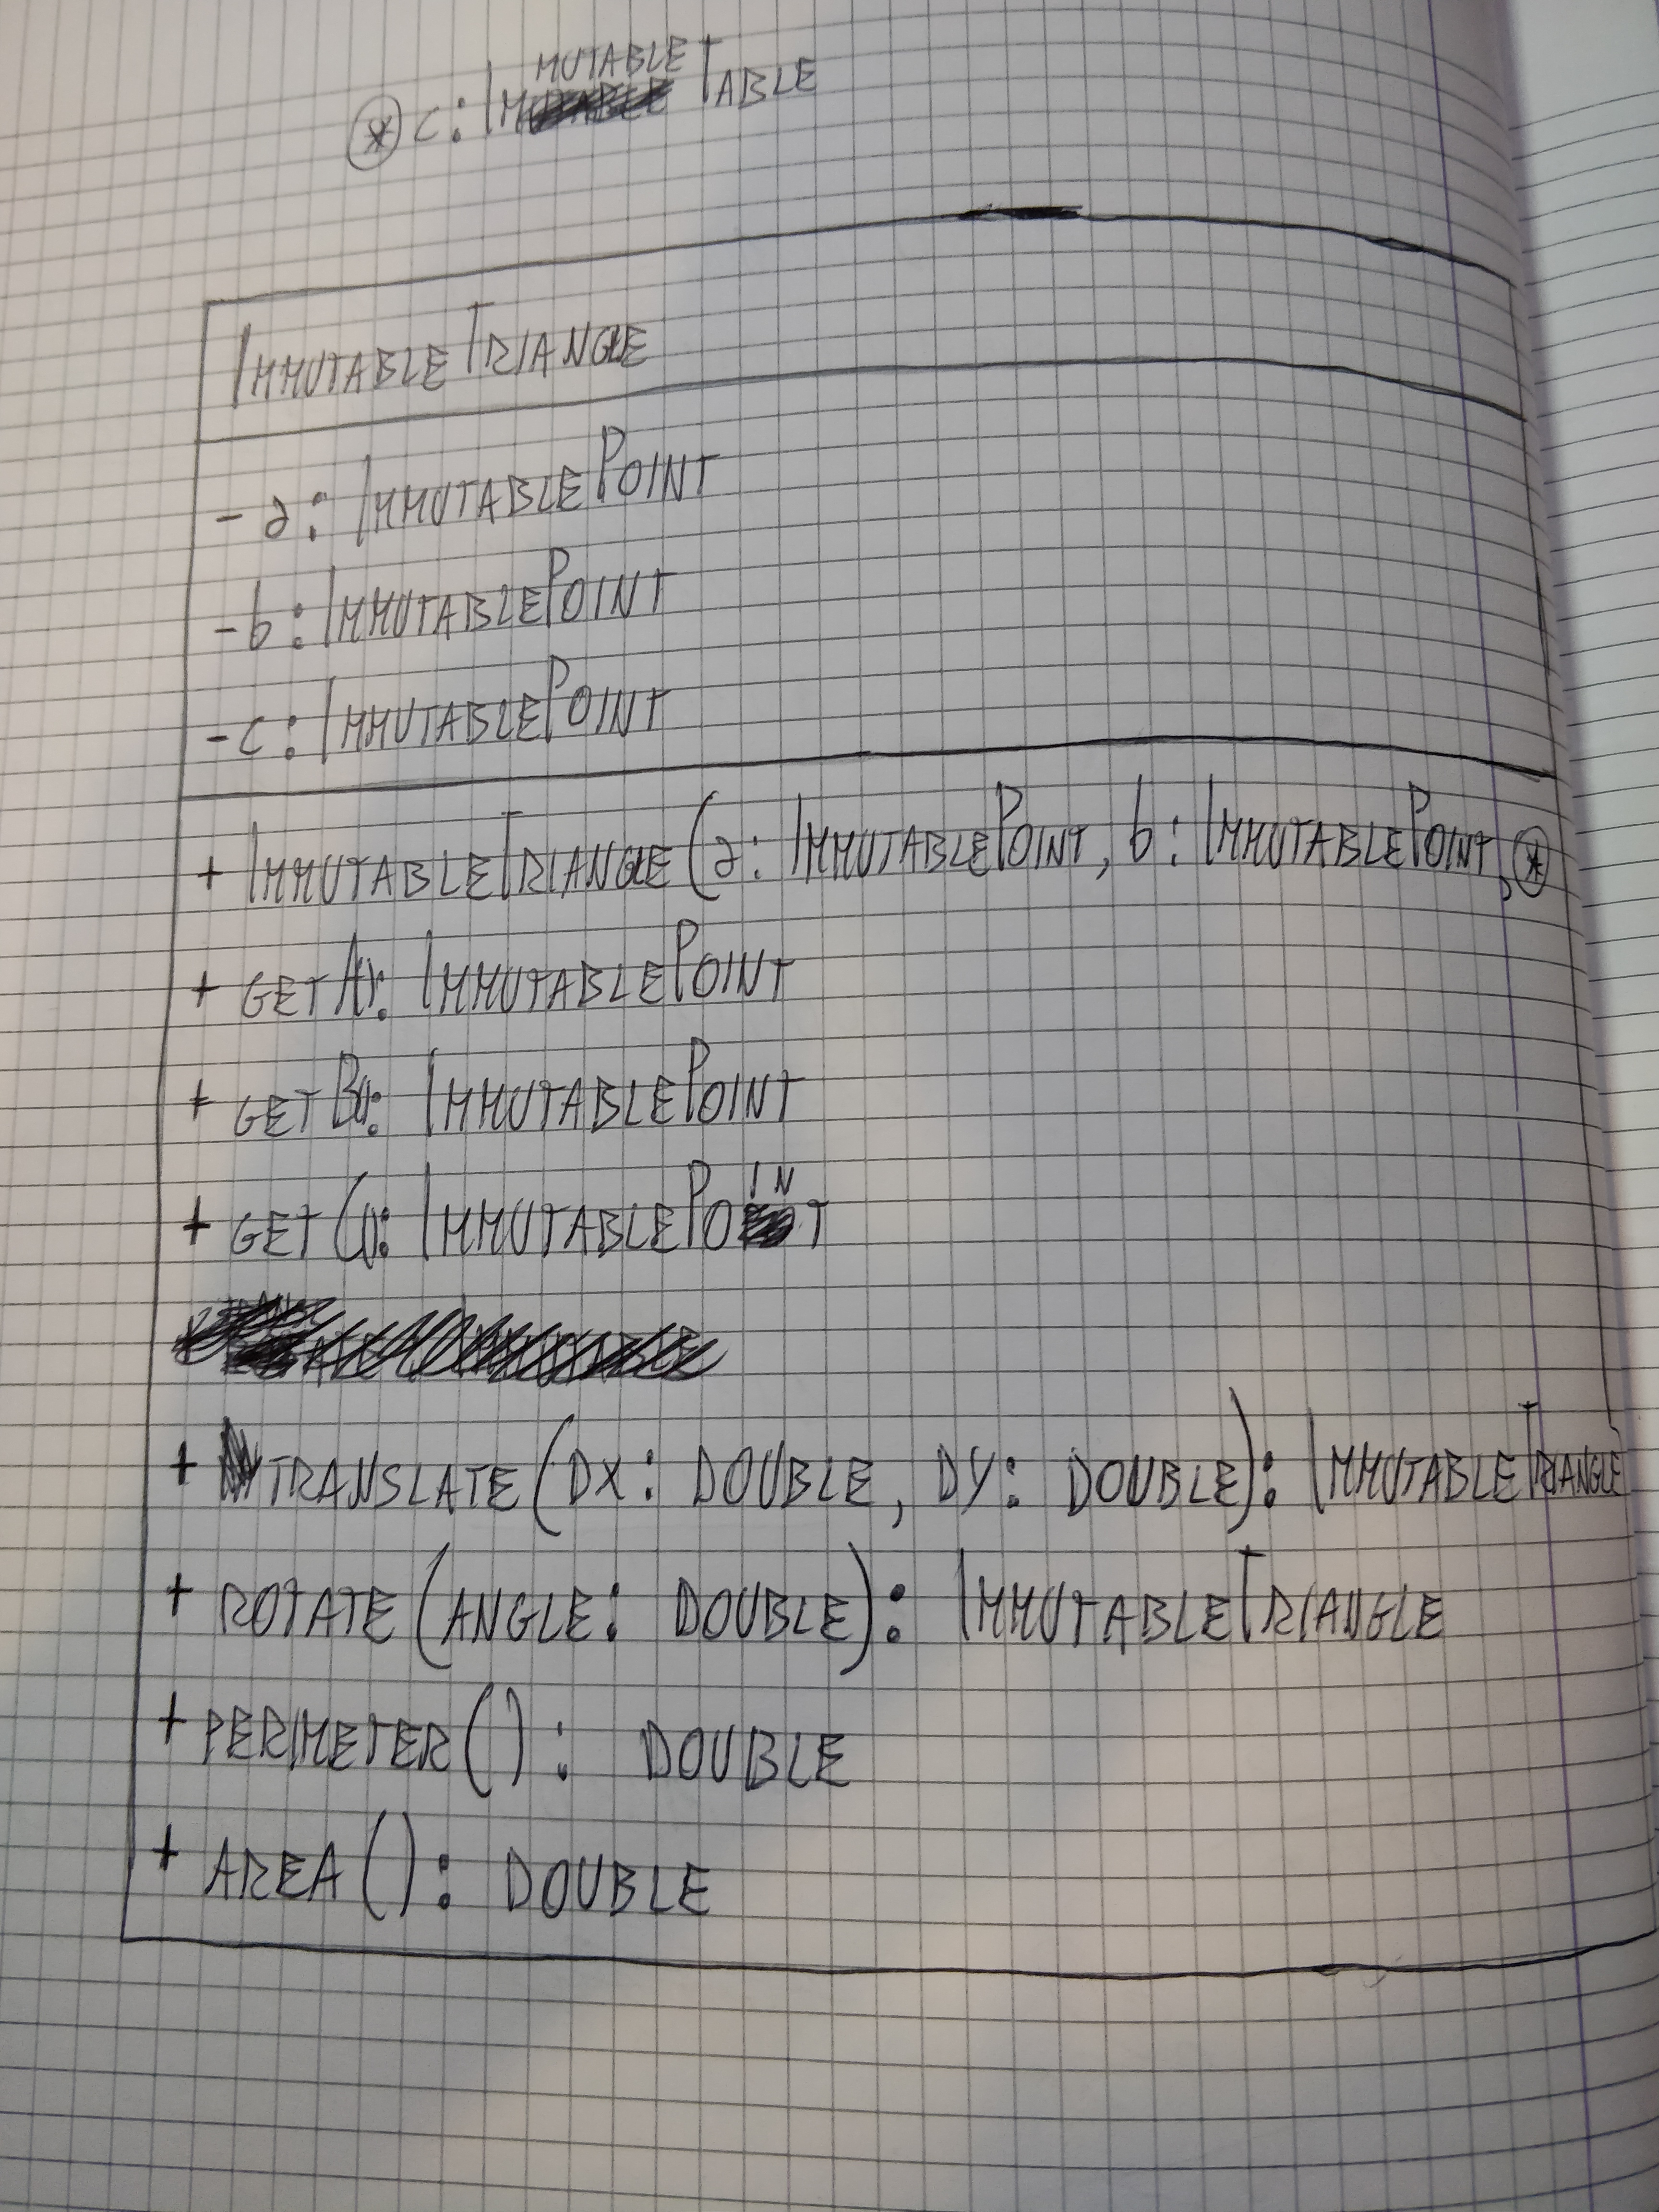 * c: ImMUTABLE TABLE
IMMUTABLETRIANGLE
- a: IMMUTABLEPOINT
- b: IMMUTABLEPOINT
- c: IMMUTABLEPOINT
+ IMMUTABLETRIANGLE(a: IMMUTABLEPOINT, b: IMMUTABLEPOINT, *
+ GETA(): IMMUTABLEPOINT
+ GETB(): IMMUTABLEPOINT
+ GETC(): IMMUTABLEPOINT
+ TRANSLATE(DX: DOUBLE, DY: DOUBLE): IMMUTABLETRIANGLE
+ ROTATE(ANGLE: DOUBLE): IMMUTABLETRIANGLE
+ PERIMETER(): DOUBLE
+ AREA(): DOUBLE